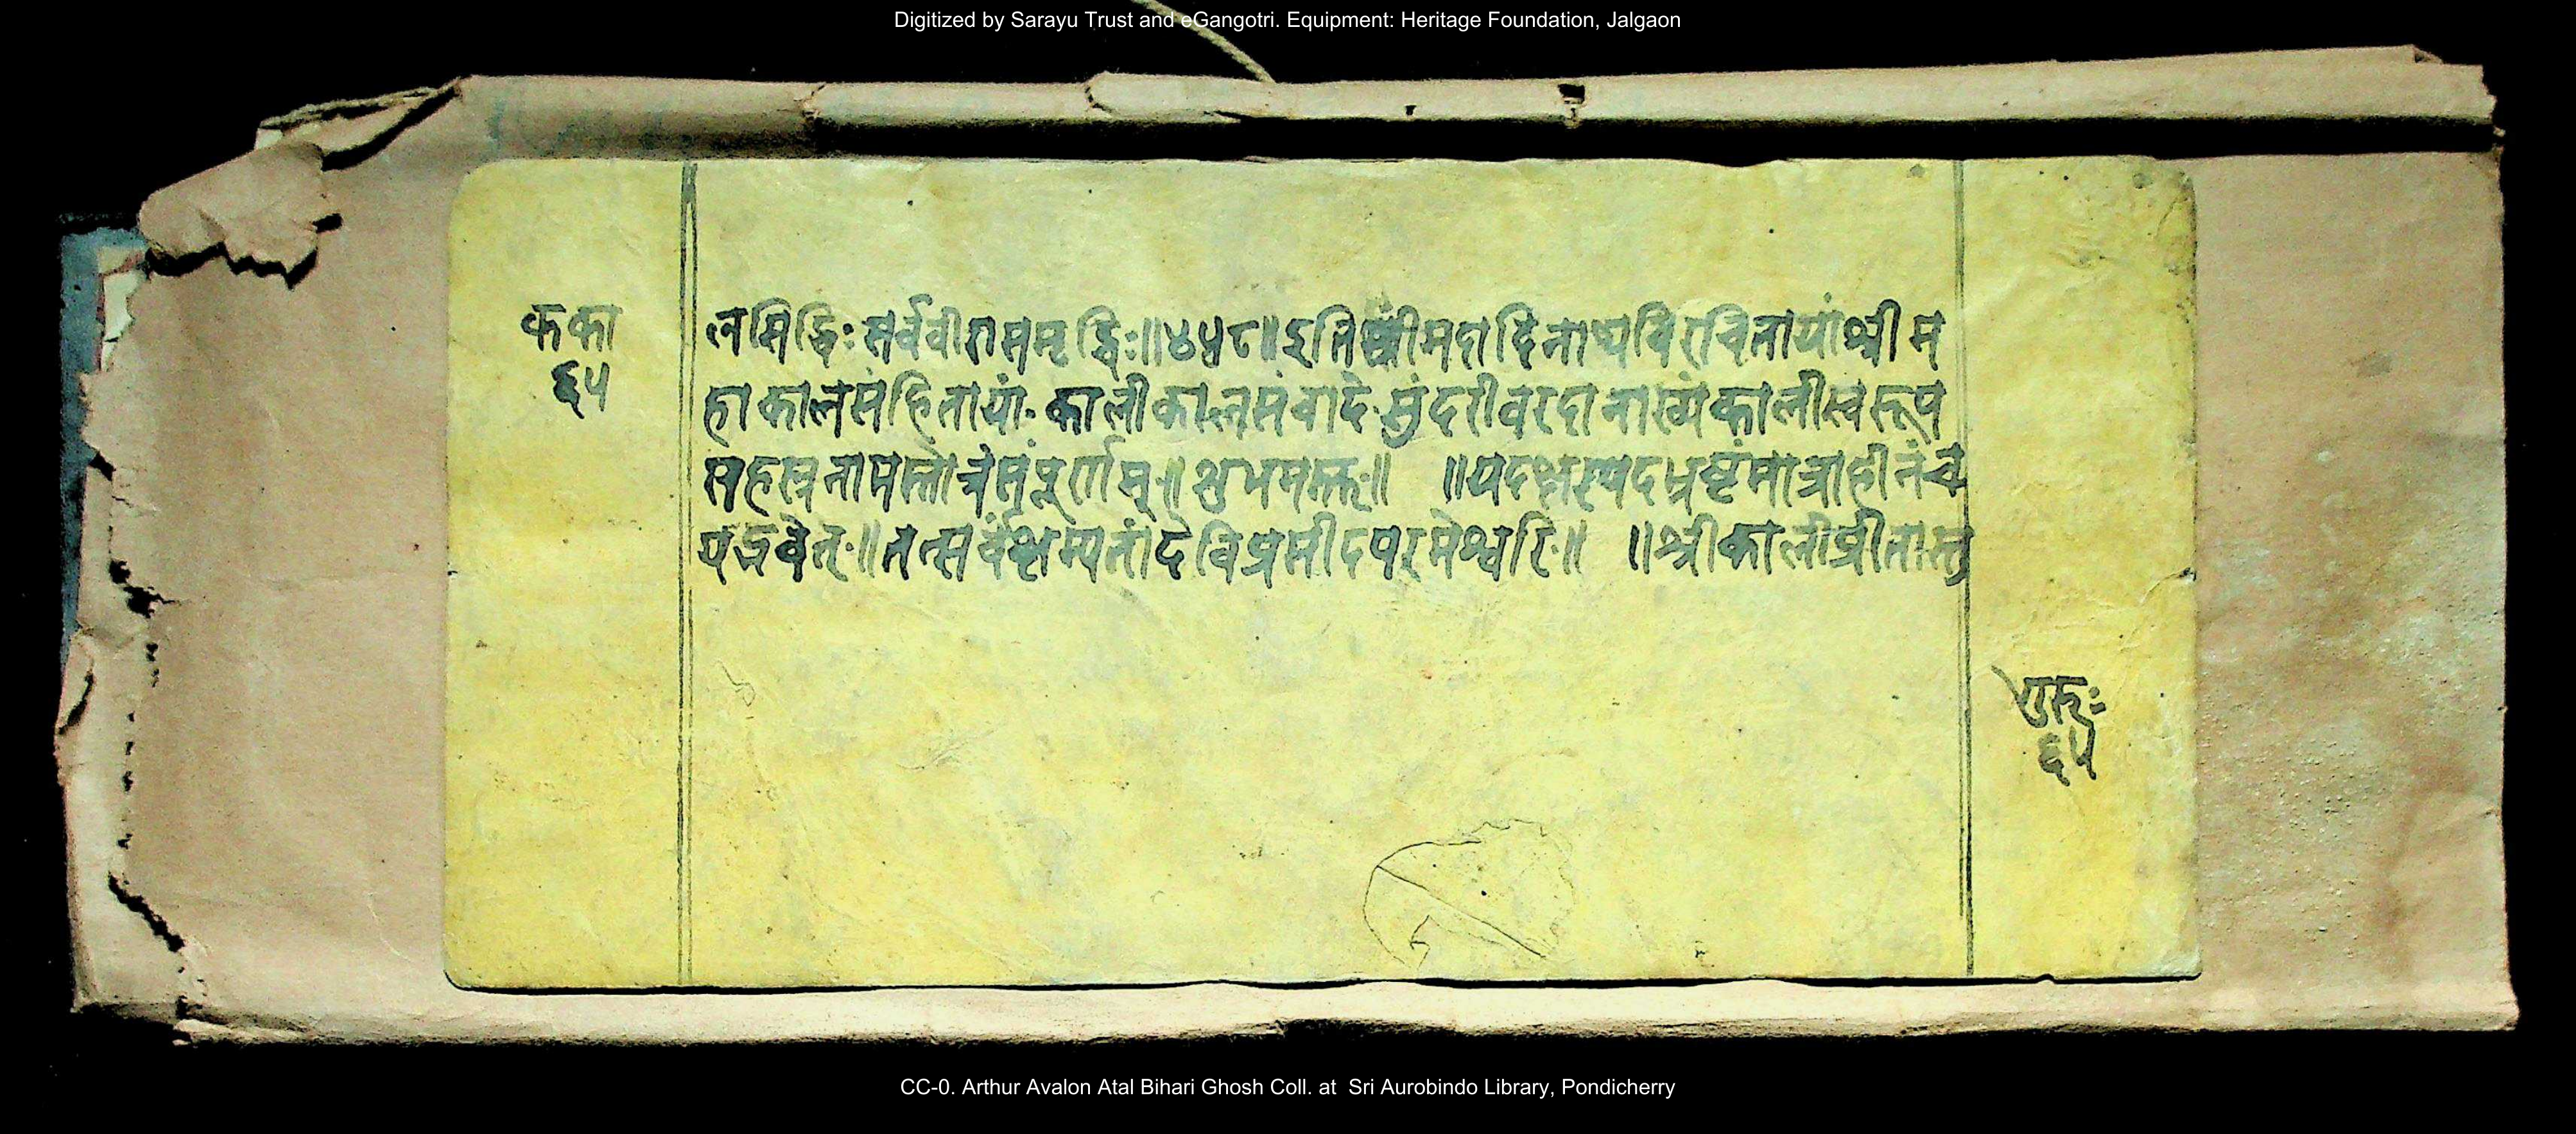 Digitized by Sarayu Trust and eGangotri. Equipment: Heritage Foundation, Jalgaon
कका
६५
लसिद्धिः सर्ववीरासमृद्धिः॥४५८॥इतिश्रीमदादिनाथविरचितायांश्रीम
हाकालसंहितायां कालीकालसंवादे सुंदरीवरदानाख्यंकालीस्वरूप
सहस्रनामस्तोत्रंसंपूर्णम्॥शुभमस्तु॥ ॥यदक्षरपदभ्रष्टंमात्राहीनंच
यद्भवेत्॥तत्सर्वंक्षम्यतांदेविप्रसीदपरमेश्वरि॥ ॥श्रीकालीप्रीतास्तु
गुरुः
६५
CC-0. Arthur Avalon Atal Bihari Ghosh Coll. at Sri Aurobindo Library, Pondicherry